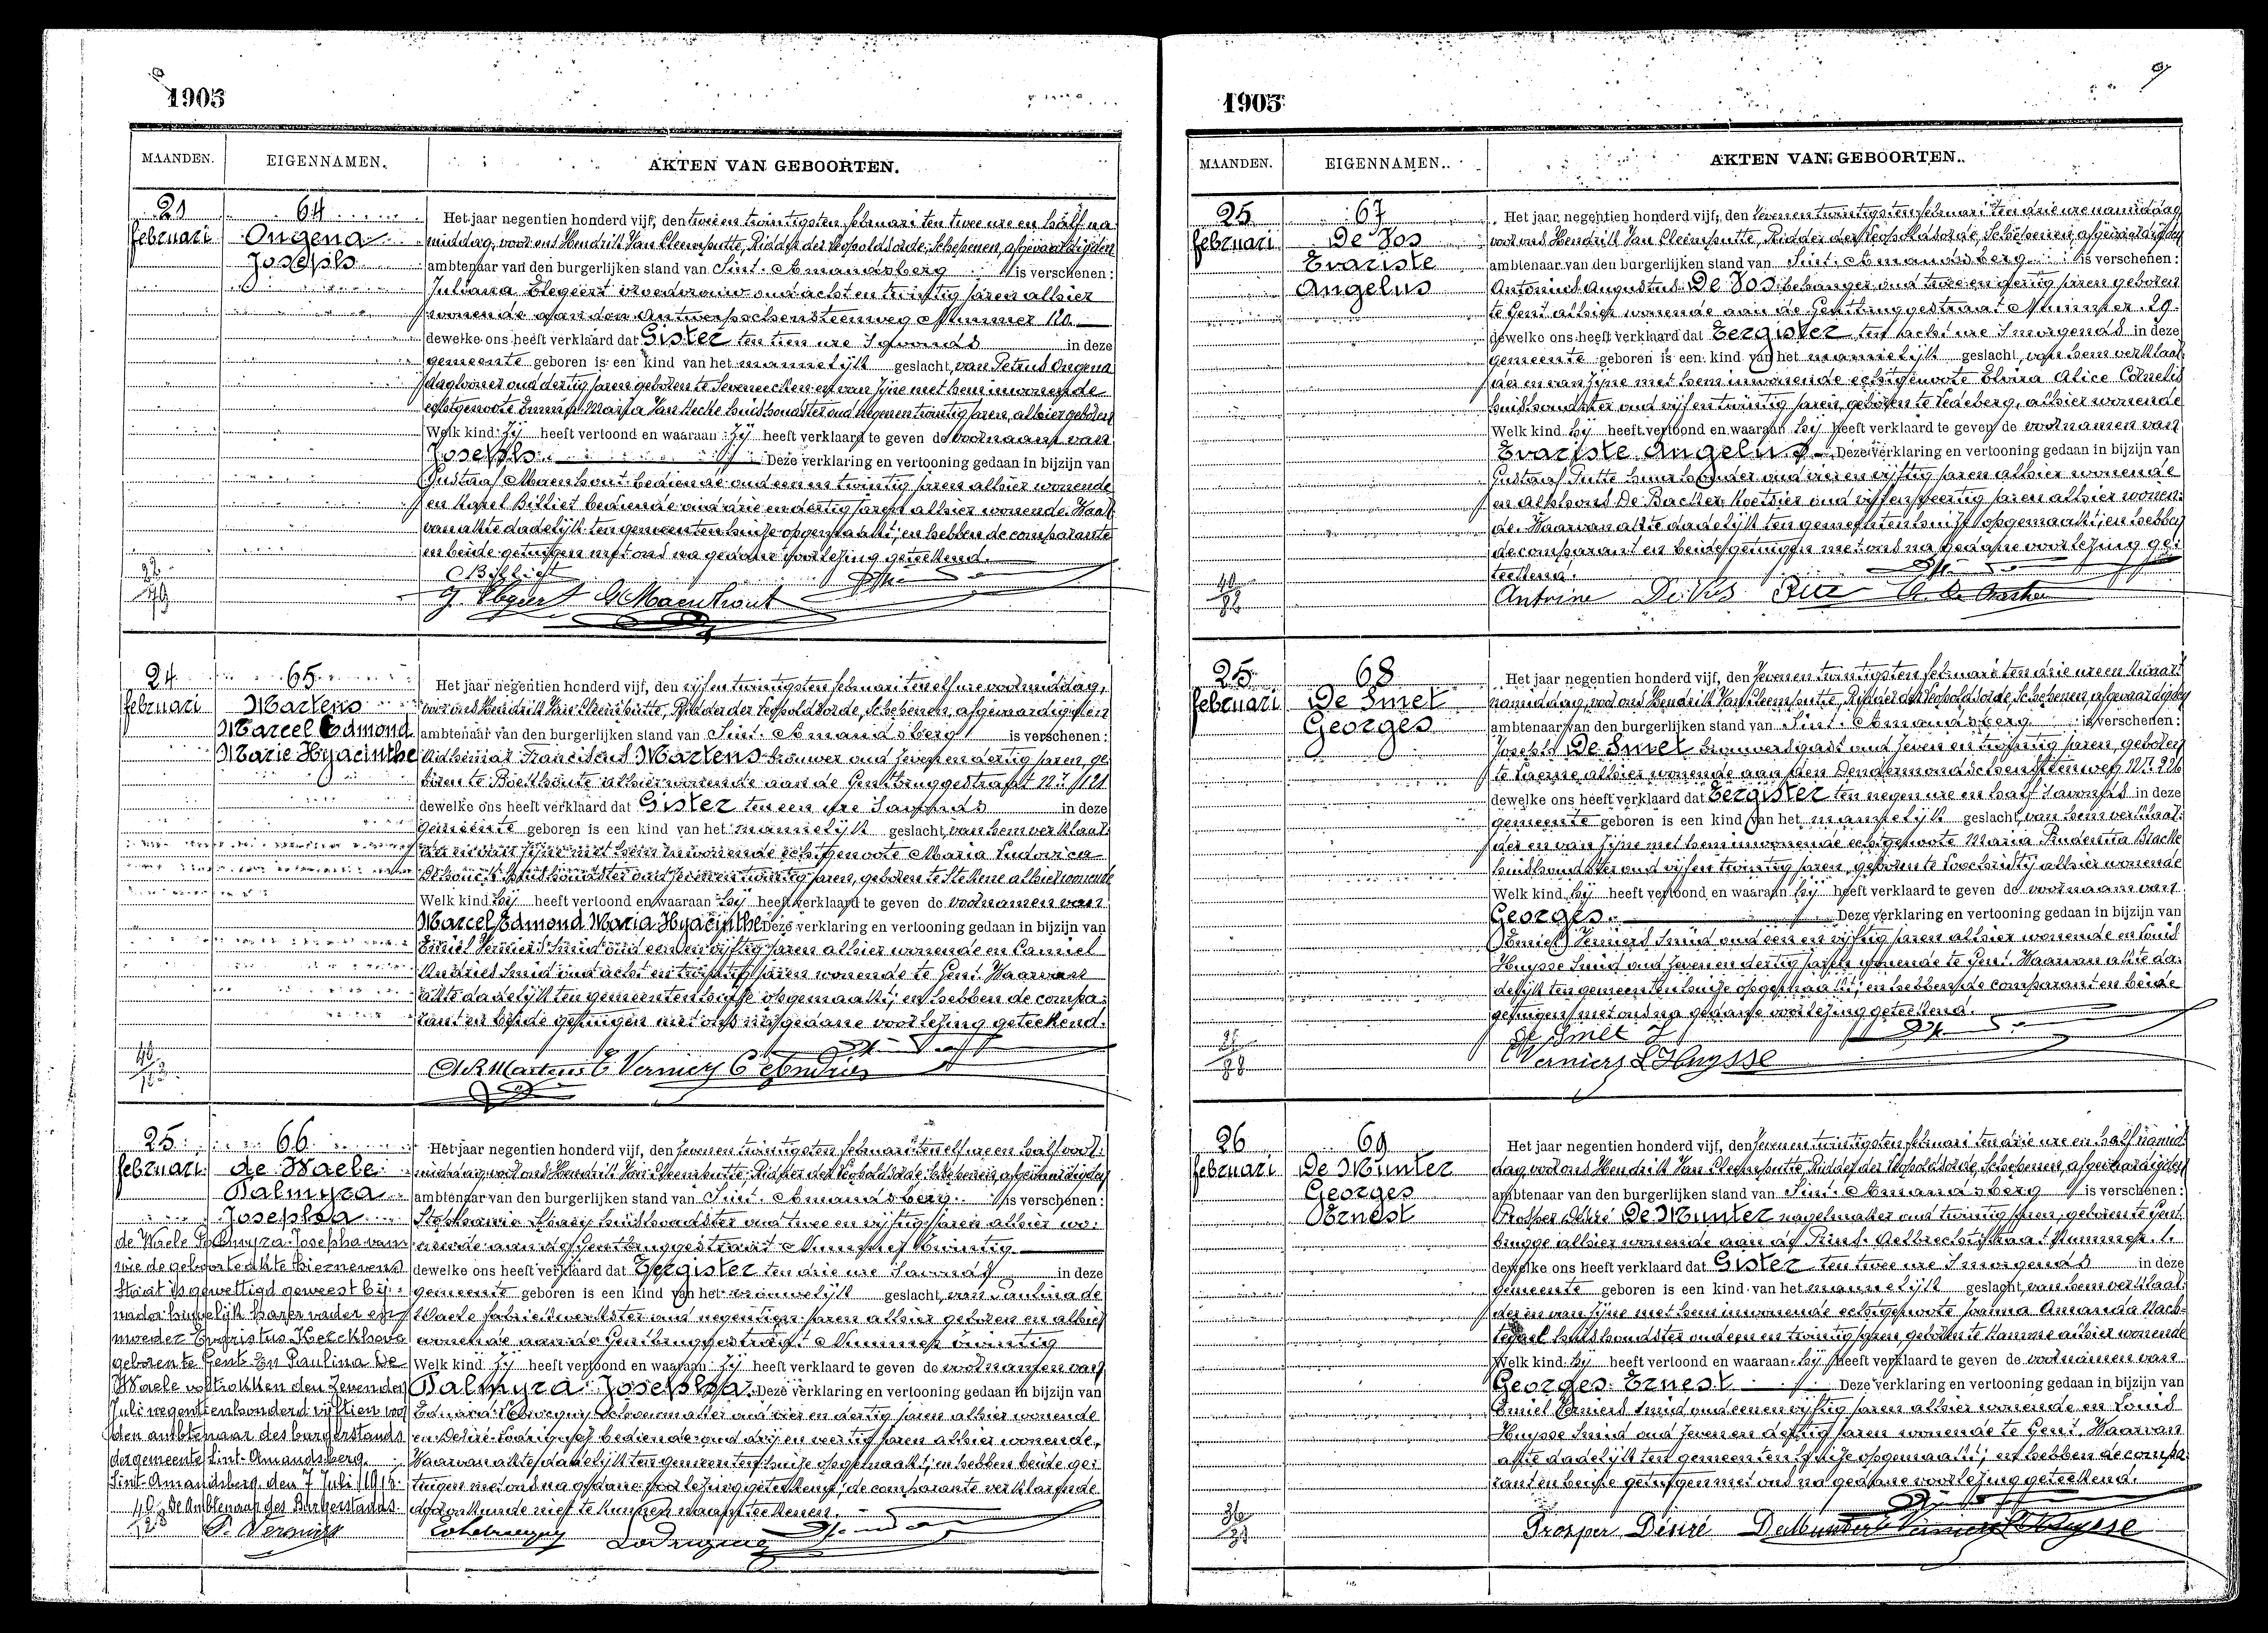 1905
MAANDEN. EIGENNAMEN. AKTEN VAN GEBOORTEN.
21
februari
64
Ongena
Joseph
Het jaar negentien honderd vijf, den twee en twintigsten februari ten twee ure en half na
middag, voor ons Hendrik Van Cleemputte, Ridder der Leopoldsorde, Schepenen, afgevaardigden
ambtenaar van den burgerlijken stand van Sint. Amandsberg is verschenen:
Juliana Elegeert vroedvrouw oud acht en twintig jaren alhier
wonende aan den Antwerpschensteenweg Nummer 120.
dewelke ons heeft verklaard dat Gister ten tien ure s'avonds in deze
gemeente geboren is een kind van het mannelijk geslacht, van Petrus Ongena
daglooner oud dertig jaren geboren te Seveneecken en van zijne met hem inwonende
echtgenoote Maria Van Hecke huishoudster oud negen en twintig jaren, alhier geboren
Welk kind zij heeft vertoond en waaraan zij heeft verklaard te geven de voornaam van
Joseph. Deze verklaring en vertooning gedaan in bijzijn van
Gustaaf Maenhout bediende oud een en twintig jaren alhier wonende
en Karel Billiet bediende oud drie en dertig jaren alhier wonende. Waar
van akte dadelijk ten gemeentenhuize opgemaakt; en hebben de comparante
en beide getuigen met ons na gedane voorlezing geteekend.
G Maenhout
24
februari
65
Martens
Marcel Edmond
Marie Hyacinthe
Het jaar negentien honderd vijf, den vijf en twintigsten februari ten elf ure voormiddag,
voor ons Hendrik Van Cleemputte, Ridder der Leopoldsorde, Schepenen, afgevaardigden
ambtenaar van den burgerlijken stand van Sint. Amandsberg is verschenen:
Adhemar Franciscus Martens brouwer oud zeven en dertig jaren, ge
boren te Bouchoute alhier wonende aan de Gentbruggestraat Nr 121
dewelke ons heeft verklaard dat Gister ten een ure s'avonds in deze
gemeente geboren is een kind van het mannelijk geslacht, van hem verklaar
der en van zijne met hem inwonende echtgenoote Maria Ludovica
huishoudster oud zeven en twintig jaren, geboren te Stekene alhier wonende
Welk kind hij heeft vertoond en waaraan hij heeft verklaard te geven de voornamen van
Marcel Edmond Maria Hyacinthe Deze verklaring en vertooning gedaan in bijzijn van
Emiel Verniers Smid oud een en vijftig jaren alhier wonende en Camiel
Andries Smid oud acht en twintig jaren wonende te Gent. Waarvan
akte dadelijk ten gemeentenhuize opgemaakt; en hebben de compa
rant en beide getuigen met ons na gedane voorlezing geteekend.
Martens E Verniers C Andries
25
februari
66
de Waele
Palmyra
Josepha
de Waele Palmyra Josepha van
wie de geboorteakte hiernevens
staat is gewettigd geweest bij
moeder Evaristus Kerckhove
geboren te Gent en Paulina De
Waele voltrokken den zevenden
Juli negentienhonderd vijftien voor
den ambtenaar des burgerstands
der gemeente Sint-Amandsberg.
Sint-Amandsberg, den 7 Juli 1915.
De Ambtenaar des Burgerstands.
Het jaar negentien honderd vijf, den zeven en twintigsten februari ten elf ure en half voor
middag, voor ons Hendrik Van Cleemputte, Ridder der Leopoldsorde, Schepenen, afgevaardigden
ambtenaar van den burgerlijken stand van Sint. Amandsberg. is verschenen:
Stephanie huishoudster oud twee en vijftig jaren alhier wo
nende aan de Gentbruggestraat Nummer twintig
dewelke ons heeft verklaard dat Eergister ten drie ure s'avonds in deze
gemeente geboren is een kind van het vrouwelijk geslacht, van Paulina de
Waele fabriekwerkster oud negentien jaren alhier geboren en alhier
wonende aan de Gentbruggestraat Nummer twintig
Welk kind zij heeft vertoond en waaraan zij heeft verklaard te geven de voornamen van
Palmyra Josepha. Deze verklaring en vertooning gedaan in bijzijn van
Eduard Schoenmaker oud vier en dertig jaren alhier wonende
en Désiré bediende oud drij en veertig jaren alhier wonende.
Waarvan akte dadelijk ten gemeentenhuize opgemaakt; en hebben beide ge
tuigen met ons na gedane voorlezing geteekend; de comparante verklarende
daarvan niet te kunnen naamteekenen.
1905
9
MAANDEN. EIGENNAMEN. AKTEN VAN GEBOORTEN.
25
februari
67
De Vos
Evariste
Angelus
Het jaar negentien honderd vijf, den zeven en twintigsten februari ten drie ure namiddag
voor ons Hendrik Van Cleemputte, Ridder der Leopoldsorde, Schepenen, afgevaardigden
ambtenaar van den burgerlijken stand van Sint. Amandsberg is verschenen:
Antonius Augustus De Vos behanger oud twee en dertig jaren geboren
te Gent alhier wonende aan de Gentbruggestraat Nummer 29.
dewelke ons heeft verklaard dat Eergister ten acht ure s'morgends in deze
gemeente geboren is een kind van het mannelijk geslacht, van hem verklaar
der en van zijne met hem inwonende echtgenoote Elvira Alice Cornelis
huishoudster oud vijf en twintig jaren, geboren te Ledeberg, alhier wonende
Welk kind hij heeft vertoond en waaraan hij heeft verklaard te geven de voornamen van
Evariste Angelus. Deze verklaring en vertooning gedaan in bijzijn van
Gustaaf Putte huurhouder oud vier en vijftig jaren alhier wonende
en Alphons De Backer Koetsier oud vijf en veertig jaren alhier wonen
de. Waarvan akte dadelijk ten gemeentenhuize opgemaakt; en hebben
de comparant en beide getuigen met ons na gedane voorlezing ge
teekend.
Antoine De Vos
25
februari
68
De Smet
Georges
Het jaar negentien honderd vijf, den zeven en twintigsten februari ten drie ure en kwart
namiddag, voor ons Hendrik Van Cleemputte, Ridder der Leopoldsorde, Schepenen, afgevaardigden
ambtenaar van den burgerlijken stand van Sint. Amandsberg is verschenen:
Joseph De Smet brouwersgast oud zeven en twintig jaren, geboren
te Laerne alhier wonende aan den Dendermondschensteenweg Nr. 226
dewelke ons heeft verklaard dat Eergister ten negen ure en half s'avonds in deze
gemeente geboren is een kind van het mannelijk geslacht, van hem verklaar
der en van zijne met hem inwonende echtgenoote Maria Prudentia Bracke
huishoudster oud vijf en twintig jaren, geboren te Loochristij alhier wonende
Welk kind hij heeft vertoond en waaraan hij heeft verklaard te geven de voornaam van
Georges. Deze verklaring en vertooning gedaan in bijzijn van
Emiel Verniers Smid oud een en vijftig jaren alhier wonende en Louis
Huysse Smid oud zeven en dertig jaren wonende te Gent. Waarvan akte da
delijk ten gemeentenhuize opgemaakt; en hebben de comparant en beide
getuigen met ons na gedane voorlezing geteekend.
De Smet J
Verniers L Huysse
26
februari
69
De Munter
Georges
Ernest
Het jaar negentien honderd vijf, den zeven en twintigsten februari ten drie ure en half namid
dag voor ons Hendrik Van Cleemputte, Ridder der Leopoldsorde, Schepenen, afgevaardigden
ambtenaar van den burgerlijken stand van Sint. Amandsberg is verschenen:
Prosper Désiré De Munter nagelmaker oud twintig jaren, geboren te Gent
brugge alhier wonende aan de Prins Aelbrechtstraat Nummer 1.
dewelke ons heeft verklaard dat Gister ten twee ure s'morgends in deze
gemeente geboren is een kind van het mannelijk geslacht, van hem verklaar
der en van zijne met hem inwonende echtgenoote Joanna Amanda
huishoudster oud een en twintig jaren, geboren te Hamme alhier wonende
Welk kind hij heeft vertoond en waaraan hij heeft verklaard te geven de voornamen van
Georges Ernest Deze verklaring en vertooning gedaan in bijzijn van
Emiel Verniers Smid oud een en vijftig jaren alhier wonende en Louis
Huysse Smid oud zeven en dertig jaren wonende te Gent. Waarvan
akte dadelijk ten gemeentenhuize opgemaakt; en hebben de compa
rant en beide getuigen met ons na gedane voorlezing geteekend.
Prosper Désiré DeMunter Verniers L Huysse